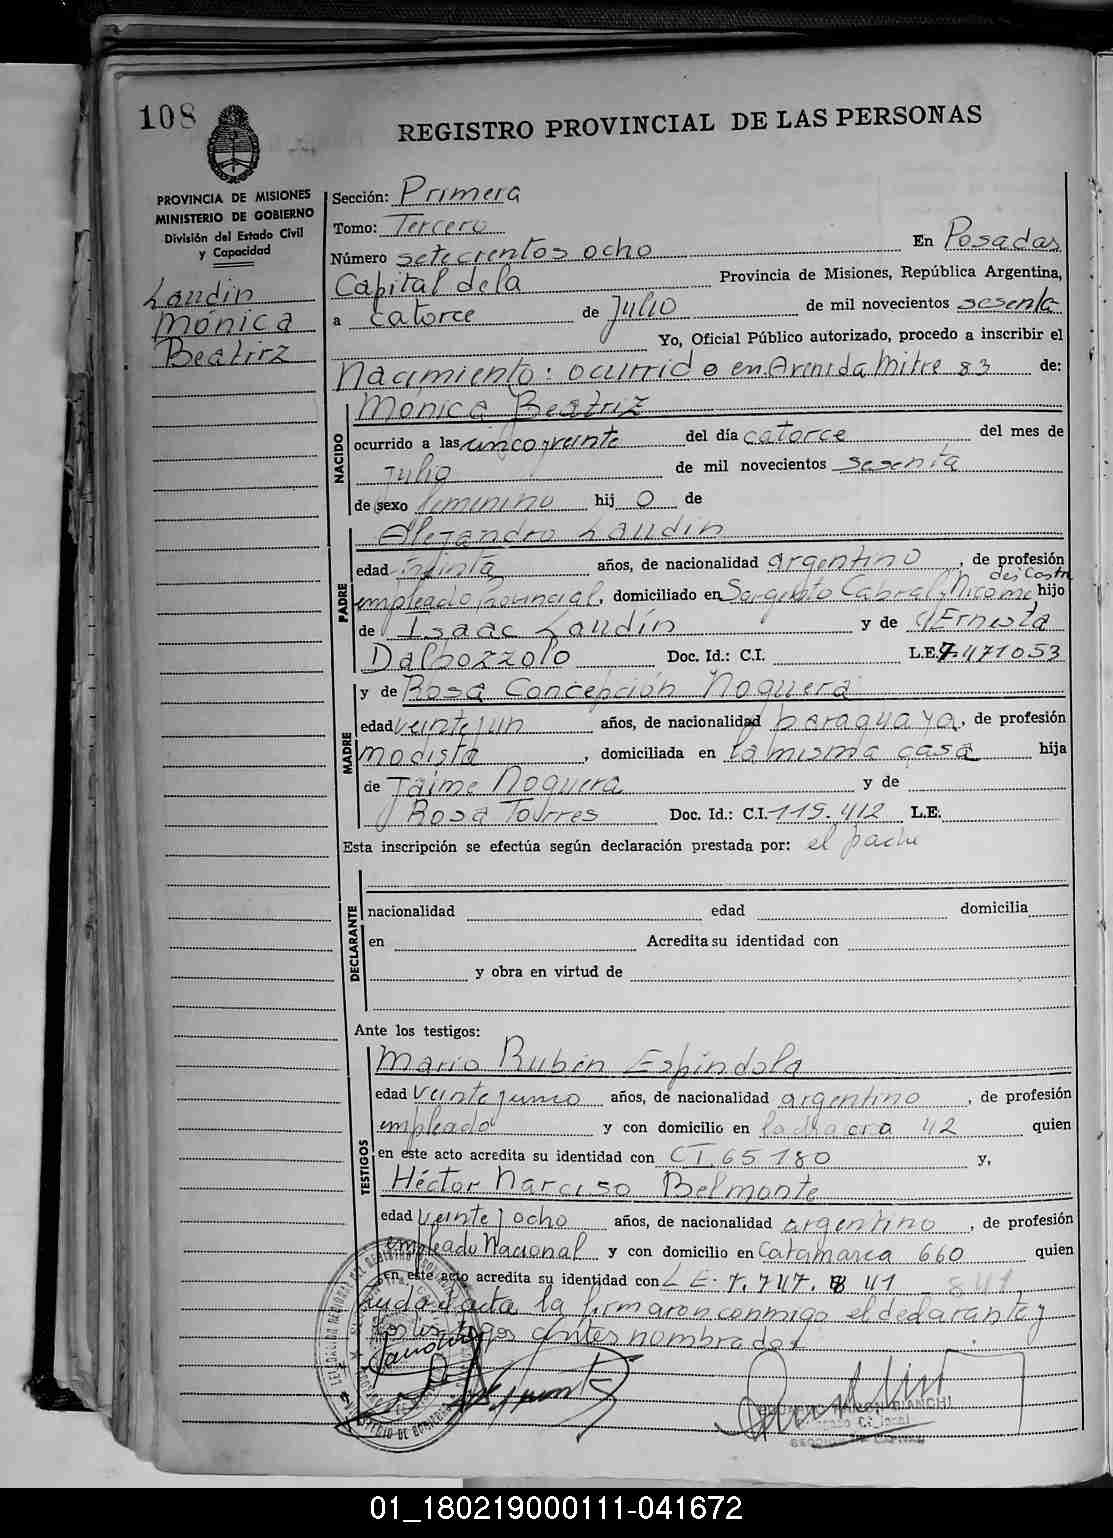 108
REGISTRO PROVINCIAL DE LAS PERSONAS
PROVINCIA DE MISIONES
MINISTERIO DE GOBIERNO
División del Estado Civil
y Capacidad
Laudin
Mónica
Beatirz
Sección: Primera
Tomo: Tercero
Número setecientos ocho En Posadas
Capital dela Provincia de Misiones, República Argentina,
a catorce de Julio de mil novecientos sesenta
Yo, Oficial Público autorizado, procedo a inscribir el
Nacimiento: ocurrido en Avenida Mitre 83 de:
NACIDO
Mónica Beatriz
ocurrido a las cinco y veinte del día catorce del mes de
Julio de mil novecientos sesenta
de sexo femenino hij o de
PADRE
Alejandro Laudin
edad años, de nacionalidad argentino, de profesión
empleado Provincial, domiciliado en Sargento Cabral y hijo
de Isaac Laudín y de Ernesta
Dalbozzolo Doc. Id.: C.I. L.E. 7.471053
MADRE
y de Rosa Concepción Noguera
edad veinte y un años, de nacionalidad paraguaya, de profesión
modista, domiciliada en la misma casa hija
de Jaime Noguera y de
Rosa Torres Doc. Id.: C.I. 119.412 L.E.
Esta inscripción se efectúa según declaración prestada por: el padre
DECLARANTE
nacionalidad edad domicilia
en Acredita su identidad con
y obra en virtud de
Ante los testigos:
TESTIGOS
Mario Rubén Espíndola
edad años, de nacionalidad argentino, de profesión
empleado y con domicilio en 42 quien
en este acto acredita su identidad con CI. 65180 y,
Héctor Narciso Belmonte
edad veinte y ocho años, de nacionalidad argentino, de profesión
empleado Nacional y con domicilio en Catamarca 660 quien
en este acto acredita su identidad con L E. 7.747.841 841
acta la firmaron conmigo el declarante y
los testigos antes nombrados
01_180219000111-041672